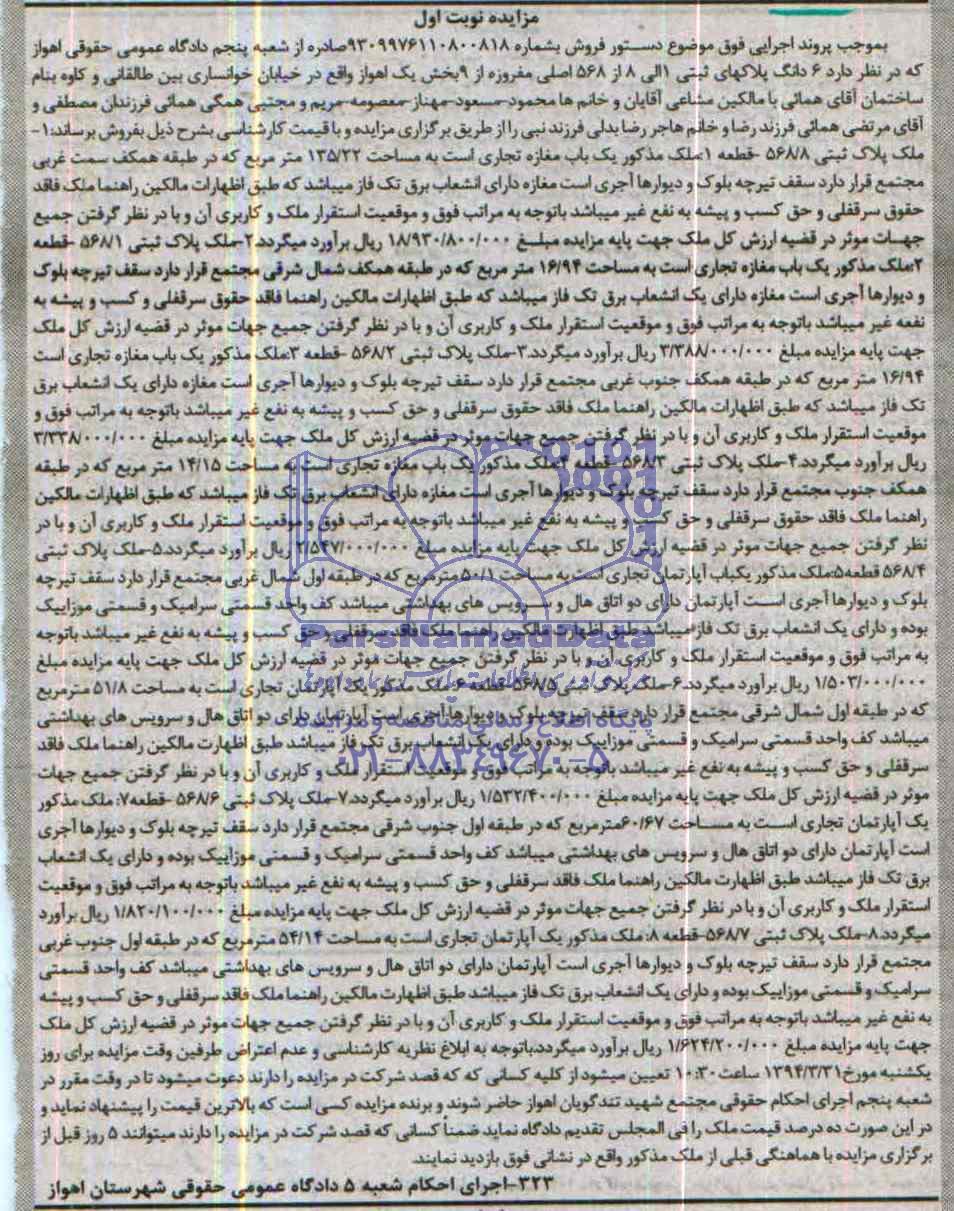 مزایده نوبت اول
بموجب پروند اجرایی فوق موضوع دستور فروش بشماره ۹۳۰۹۹۷۶۱۱۰۸۰۰۸۱۸صادره از شعبه پنجم دادگاه عمومی حقوقی اهواز
که در نظر دارد ۶ دانگ پلاکهای ثبتی ۱الی ۸ از ۵۶۸ اصلی مفروزه از ۹بخش یک اهواز واقع در خیابان خوانساری بین طالقانی و کاوه بنام
ساختمان آقای همائی با مالکین مشاعی آقایان و خانم ها محمود-مسعود-مهناز-معصومه-مریم و مجتبی همگی همائی فرزندان مصطفی و
آقای مرتضی همائی فرزند رضا و خانم هاجر رضا بدلی فرزند نبی را از طریق برگزاری مزایده و با قیمت کارشناسی بشرح ذیل بفروش برساند:۱-
ملک پلاک ثبتی ۵۶۸/۸ -قطعه ۱:ملک مذکور یک باب مغازه تجاری است به مساحت ۱۳۵/۲۲ متر مربع که در طبقه همکف سمت غربی
مجتمع قرار دارد سقف تیرچه بلوک و دیوارها آجری است مغازه دارای انشعاب برق تک فاز میباشد که طبق اظهارات مالکین راهنما ملک فاقد
حقوق سرقفلی و حق کسب و پیشه به نفع غیر میباشد باتوجه به مراتب فوق و موقعیت استقرار ملک و کاربری آن و با در نظر گرفتن جمیع
جهات موثر در قضیه ارزش کل ملک جهت پایه مزایده مبلغ ۱۸/۹۳۰/۸۰۰/۰۰۰ ریال برآورد میگردد.۲-ملک پلاک ثبتی ۵۶۸/۱ -قطعه
۲:ملک مذکور یک باب مغازه تجاری است به مساحت ۱۶/۹۴ متر مربع که در طبقه همکف شمال شرقی مجتمع قرار دارد سقف تیرچه بلوک
و دیوارها آجری است مغازه دارای یک انشعاب برق تک فاز میباشد که طبق اظهارات مالکین راهنما فاقد حقوق سرقفلی و کسب و پیشه به
نفعه غیر میباشد باتوجه به مراتب فوق و موقعیت استقرار ملک و کاربری آن و با در نظر گرفتن جمیع جهات موثر در قضیه ارزش کل ملک
جهت پایه مزایده مبلغ ۳/۳۸۸/۰۰۰/۰۰۰ ریال برآورد میگردد.۳-ملک پلاک ثبتی ۵۶۸/۲ -قطعه ۳:ملک مذکور یک باب مغازه تجاری است
۱۶/۹۴ متر مربع که در طبقه همکف جنوب غربی مجتمع قرار دارد سقف تیرچه بلوک و دیوارها آجری است مغازه دارای یک انشعاب برق
تک فاز میباشد که طبق اظهارات مالکین راهنما ملک فاقد حقوق سرقفلی و حق کسب و پیشه به نفع غیر میباشد باتوجه به مراتب فوق و
موقعیت استقرار ملک و کاربری آن و با در نظر گرفتن جمیع جهات موثر در قضیه ارزش کل ملک جهت پایه مزایده مبلغ ۳/۳۳۸/۰۰۰/۰۰۰
ریال برآورد میگردد.۴-ملک پلاک ثبتی ۵۶۸/۳ -قطعه ۴:ملک مذکور یک باب مغازه تجاری است به مساحت ۱۴/۱۵ متر مربع که در طبقه
همکف جنوب مجتمع قرار دارد سقف تیرچه بلوک و دیوارها آجری است مغازه دارای انشعاب برق تک فاز میباشد که طبق اظهارات مالکین
راهنما ملک فاقد حقوق سرقفلی و حق کسب و پیشه به نفع غیر میباشد باتوجه به مراتب فوق و موقعیت استقرار ملک و کاربری آن و با در
نظر گرفتن جمیع جهات موثر در قضیه ارزش کل ملک جهت پایه مزایده مبلغ ۲/۵۴۷/۰۰۰/۰۰۰ ریال برآورد میگردد.۵-ملک پلاک ثبتی
۵۶۸/۴ قطعه۵:ملک مذکور یکباب آپارتمان تجاری است به مساحت ۵۰/۱ مترمربع که در طبقه اول شمال غربی مجتمع قرار دارد سقف تیرچه
بلوک و دیوارها آجری است آپارتمان دارای دو اتاق هال و سرویس های بهداشتی میباشد کف واحد قسمتی سرامیک و قسمتی موزاییک
بوده و دارای یک انشعاب برق تک فاز میباشد طبق اظهارت مالکین راهنما ملک فاقد سرقفلی و حق کسب و پیشه به نفع غیر میباشد باتوجه
به مراتب فوق و موقعیت استقرار ملک و کاربری آن و با در نظر گرفتن جمیع جهات موثر در قضیه ارزش کل ملک جهت پایه مزایده مبلغ
۱/۵۰۳/۰۰۰/۰۰۰ ریال برآورد میگردد.۶-ملک پلاک ثبتی ۵۶۸/۵-قطعه ۶: ملک مذکور یک آپارتمان تجاری است به مساحت ۵۱/۸ مترمربع
که در طبقه اول شمال شرقی مجتمع قرار دارد سقف تیرچه بلوک و دیوارها آجری است آپارتمان دارای دو اتاق هال و سرویس های بهداشتی
میباشد کف واحد قسمتی سرامیک و قسمتی موزاییک بوده و دارای یک انشعاب برق تک فاز میباشد طبق اظهارت مالکین راهنما ملک فاقد
سرقفلی و حق کسب و پیشه به نفع غیر میباشد باتوجه به مراتب فوق و موقعیت استقرار ملک و کاربری آن و با در نظر گرفتن جمیع جهات
موثر در قضیه ارزش کل ملک جهت پایه مزایده مبلغ ۱/۵۳۲/۴۰۰/۰۰۰ ریال برآورد میگردد.۷-ملک پلاک ثبتی ۵۶۸/۶ -قطعه۷: ملک مذکور
یک آپارتمان تجاری است به مساحت ۶۰/۶۷مترمربع که در طبقه اول جنوب شرقی مجتمع قرار دارد سقف تیرچه بلوک و دیوارها آجری
است آپارتمان دارای دو اتاق هال و سرویس های بهداشتی میباشد کف واحد قسمتی سرامیک و قسمتی موزاییک بوده و دارای یک انشعاب
برق تک فاز میباشد طبق اظهارت مالکین راهنما ملک فاقد سرقفلی و حق کسب و پیشه به نفع غیر میباشد باتوجه به مراتب فوق و موقعیت
استقرار ملک و کاربری آن و با در نظر گرفتن جمیع جهات موثر در قضیه ارزش کل ملک جهت پایه مزایده مبلغ ۱/۸۲۰/۱۰۰/۰۰۰ ریال برآورد
میگردد.۸-ملک پلاک ثبتی ۵۶۸/۷-قطعه ۸: ملک مذکور یک آپارتمان تجاری است به مساحت ۵۴/۱۴ مترمربع که در طبقه اول جنوب غربی
مجتمع قرار دارد سقف تیرچه بلوک و دیوارها آجری است آپارتمان دارای دو اتاق هال و سرویس های بهداشتی میباشد کف واحد قسمتی
سرامیک و قسمتی موزاییک بوده و دارای یک انشعاب برق تک فاز میباشد طبق اظهارت مالکین راهنما ملک فاقد سرقفلی و حق کسب و پیشه
به نفع غیر میباشد باتوجه به مراتب فوق و موقعیت استقرار ملک و کاربری آن و با در نظر گرفتن جمیع جهات موثر در قضیه ارزش کل ملک
جهت پایه مزایده مبلغ ۱/۶۲۴/۲۰۰/۰۰۰ ریال برآورد میگردد.باتوجه به ابلاغ نظریه کارشناسی و عدم اعتراض طرفین وقت مزایده برای روز
یکشنبه مورخ۱۳۹۴/۳/۳۱ ساعت ۱۰:۳۰ تعیین میشود از کلیه کسانی که که قصد شرکت در مزایده را دارند دعوت میشود تا در وقت مقرر در
شعبه پنجم اجرای احکام حقوقی مجتمع شهید تندگویان اهواز حاضر شوند و برنده مزایده کسی است که بالاترین قیمت را پیشنهاد نماید و
در این صورت ده درصد قیمت ملک را فی المجلس تقدیم دادگاه نماید ضمنا کسانی که قصد شرکت در مزایده را دارند میتوانند ۵ روز قبل از
برگزاری مزایده با هماهنگی قبلی از ملک مذکور واقع در نشانی فوق بازدید نمایند.
۳۲۳-اجرای احکام شعبه ۵ دادگاه عمومی حقوقی شهرستان اهواز
ParsNamadData
پایگاه اطلاع رسانی مناقصه و مزایده
۰۲۱-۸۸۳۴۹۶۷۰-۵